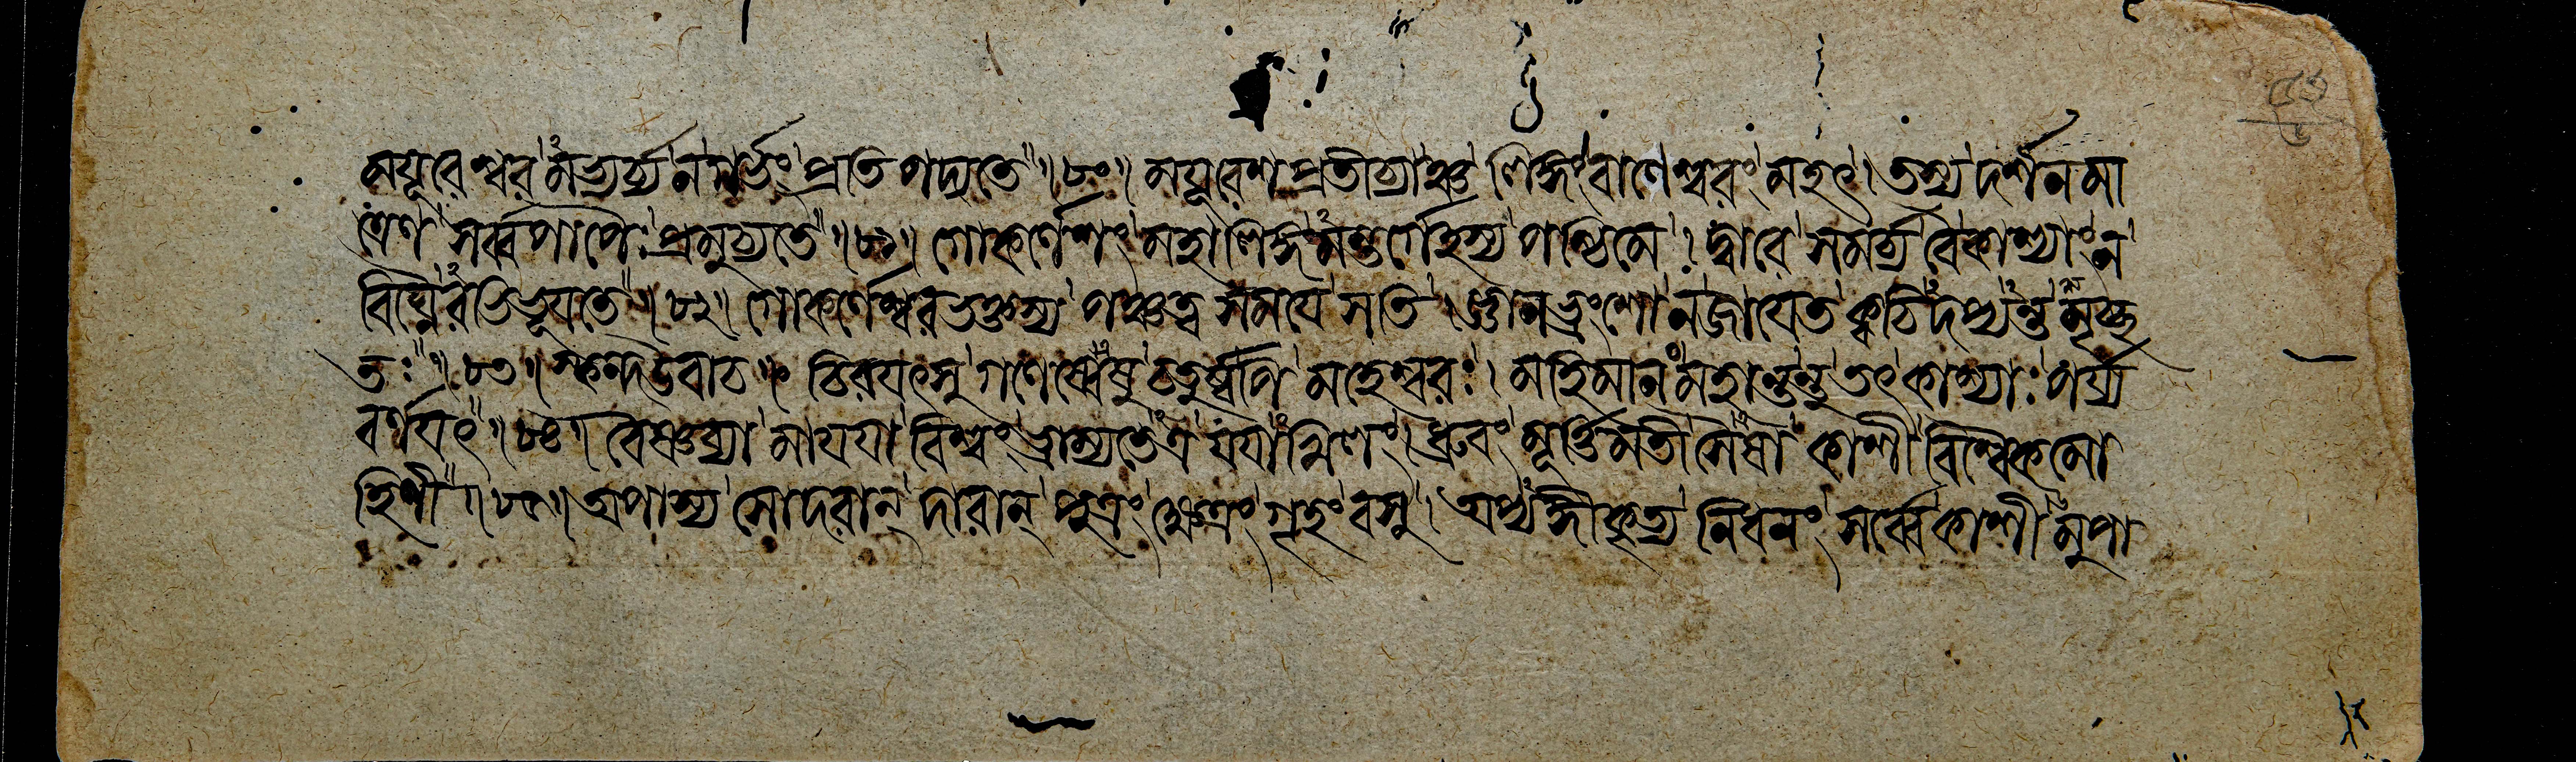 ময়ূরেশ্বরমভ্যর্চ্য ন গর্ভং প্রতিপদ্যতে ॥ ৮০ ॥ ময়ূরেশপ্রতীচ্যাঞ্চ লিঙ্গং বাণেশ্বরং মহৎ । তস্য দর্শনমা
ত্রেণ সর্ব্বপাপৈঃ প্রমুচ্যতে ॥ ৮১ ॥ গোকর্ণেশং মহালিঙ্গমন্তর্গেহস্য পশ্চিমে । দ্বারে সমর্চ্য বৈ কাশ্যাং ন
বিঘ্নৈরভিভূযতে ॥ ৮২ ॥ গোকর্ণেশ্বরভক্তস্য পঞ্চত্বসমযে সতি । জ্ঞানভ্রংশো ন জাযেত ক্বচিদপ্যন্তমৃচ্ছ
তঃ ॥ ৮৩ ॥ স্কন্দ উবাচ ॥ চিরযৎসু গণেষ্বেষু চতুর্ষ্বপি মহেশ্বরঃ । মহিমানং মহান্তন্তু তৎ কাশ্যাঃ পর্য্য
বর্ণযৎ ॥ ৮৪ ॥ বৈষ্ণব্যা মাযযা বিশ্বং ভ্রাম্যতেঽত্র যযাখিলং । ধ্রুবং মূর্ত্তিমতী সৈষা কাশী বিশ্বৈকমো
হিণী ॥ ৮৫ ॥ অপাস্য সোদরান্ দারান্ পুত্রং ক্ষেত্রং গৃহং বসু । অপ্যঙ্গীকৃত্য নিধনং সর্ব্বে কাশীমুপা